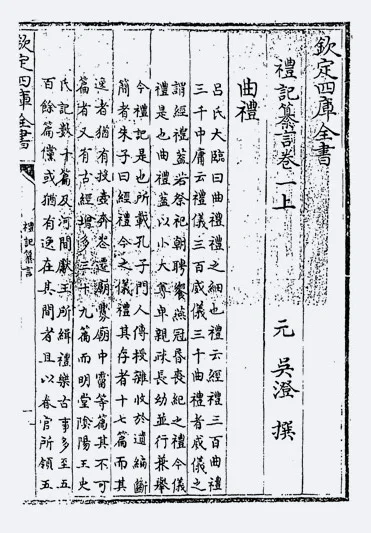 欽定四庫全書
禮記纂言卷一上
元 吳澄 撰
曲禮
呂氏大臨曰曲禮禮之細也禮云經禮三百曲禮
三千中庸云禮儀三百威儀三千曲禮者威儀之
謂經禮蓋若祭祀朝聘饗燕冠昏喪紀之禮今儀
禮是也曲禮蓋以小大尊卑親疎長幼並行兼舉
今禮記是也所載孔子門人傳授雜收於遺編斷
簡者朱子曰經禮今之儀禮其存者十七篇而其
逸者猶有投壺奔喪遷廟釁廟中霤等篇其不可
篇者又有古經増多三十九篇而明堂陰陽王史
氏記數十篇及河間獻王所緝禮樂古事多至五
百餘篇儻或猶有逸在其間者且以春官所領五
欽定四庫全書
禮記纂言
一